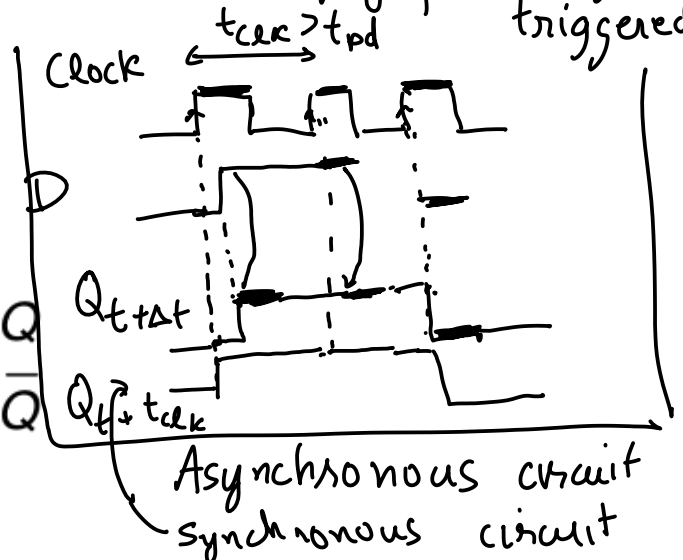 t_clk > t_pd
triggered
Clock
D
Q_t+Δt
Q
Q̅
Q_t+t_clk
Asynchronous circuit
synchronous circuit